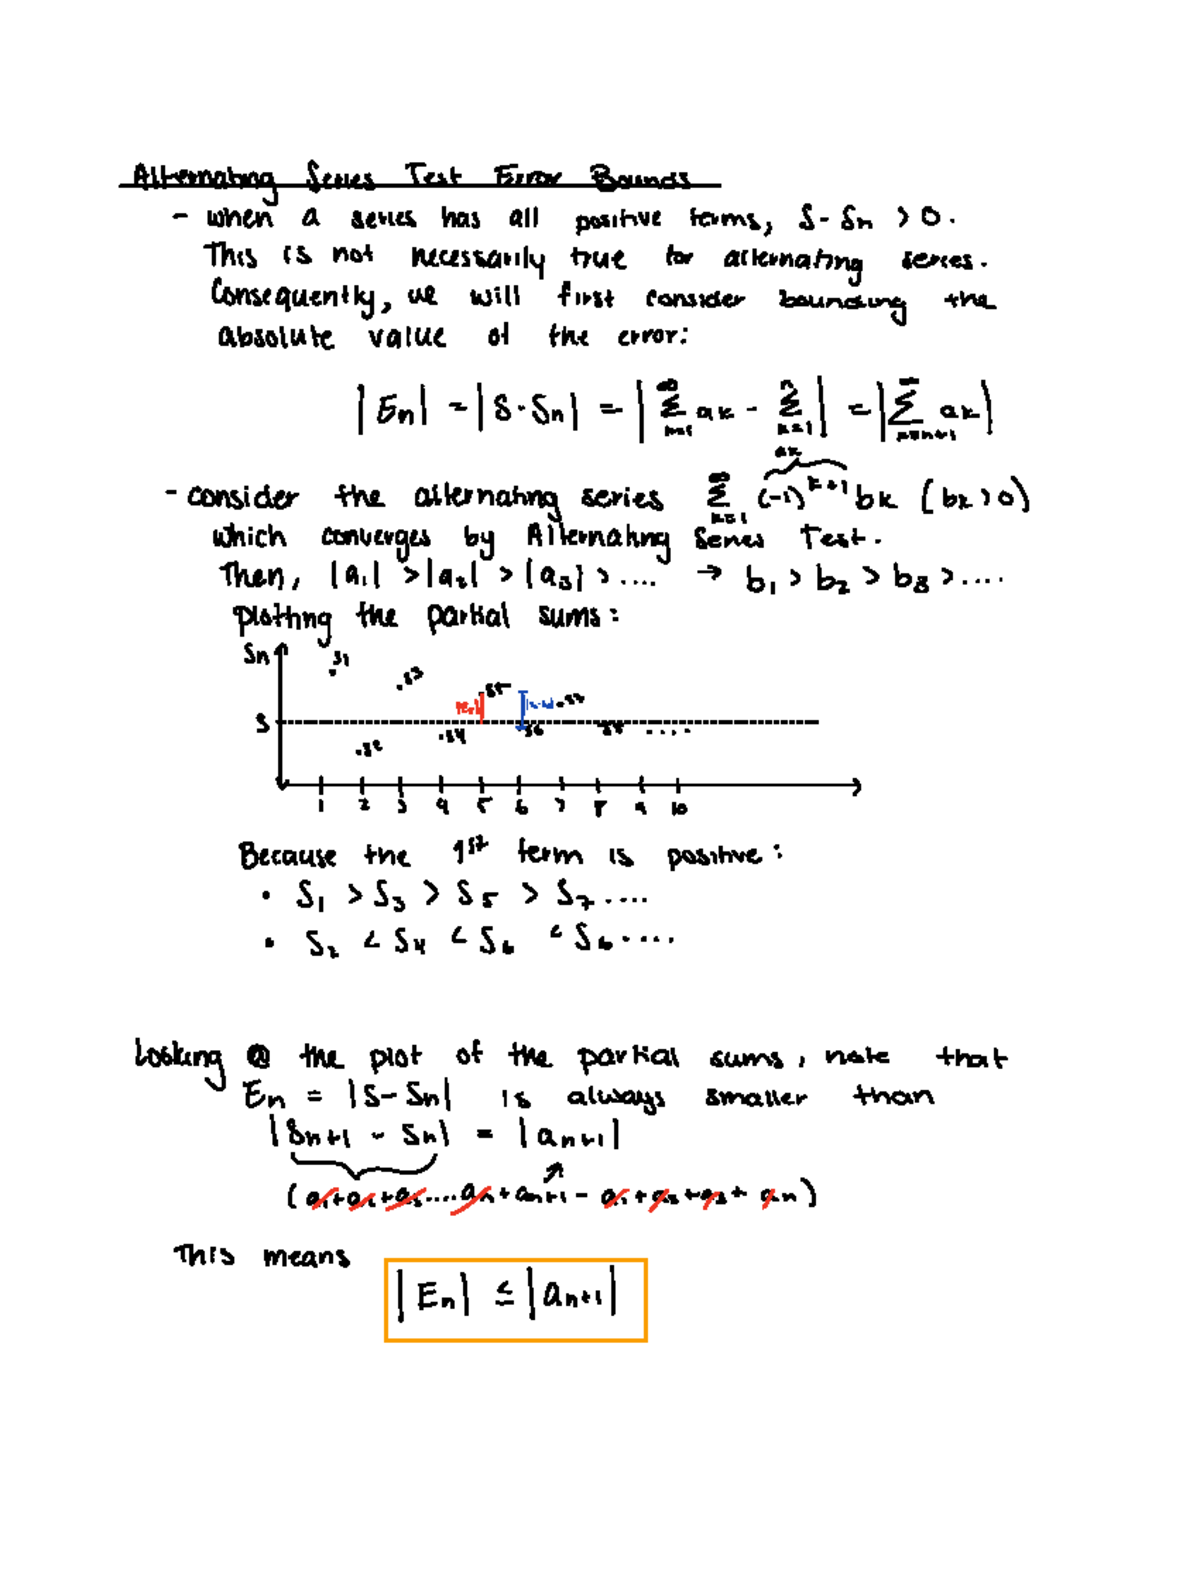 Alternating Series Test Error Bounds
- when a series has all positive terms, S - Sn > 0.
This is not necessarily true for alternating series.
Consequently, we will first consider bounding the
absolute value of the error:
|En| = |S - Sn| = |∞Σk=1 ak - nΣk=1 ak| = |∞Σk=n+1 ak|
- consider the alternating series ∞Σk=1 (-1)^k+1 bk (bk > 0)
which converges by Alternating Series Test.
Then, |a1| > |a2| > |a3| > .... → b1 > b2 > b3 > ....
plotting the partial sums:
Sn
S1
S3
S5
S7
S
S4
S6
S8
....
S2
1 2 3 4 5 6 7 8 9 10
Because the 1st term is positive:
• S1 > S3 > S5 > S7 ....
• S2 < S4 < S6 < S6 ....
Looking @ the plot of the partial sums, note that
En = |S - Sn| is always smaller than
|Sn+1 - Sn| = |an+1|
(a1 + a2 + a3 .... an + an+1 - a1 + a2 + a3 + an)
This means
|En| ≤ |an+1|